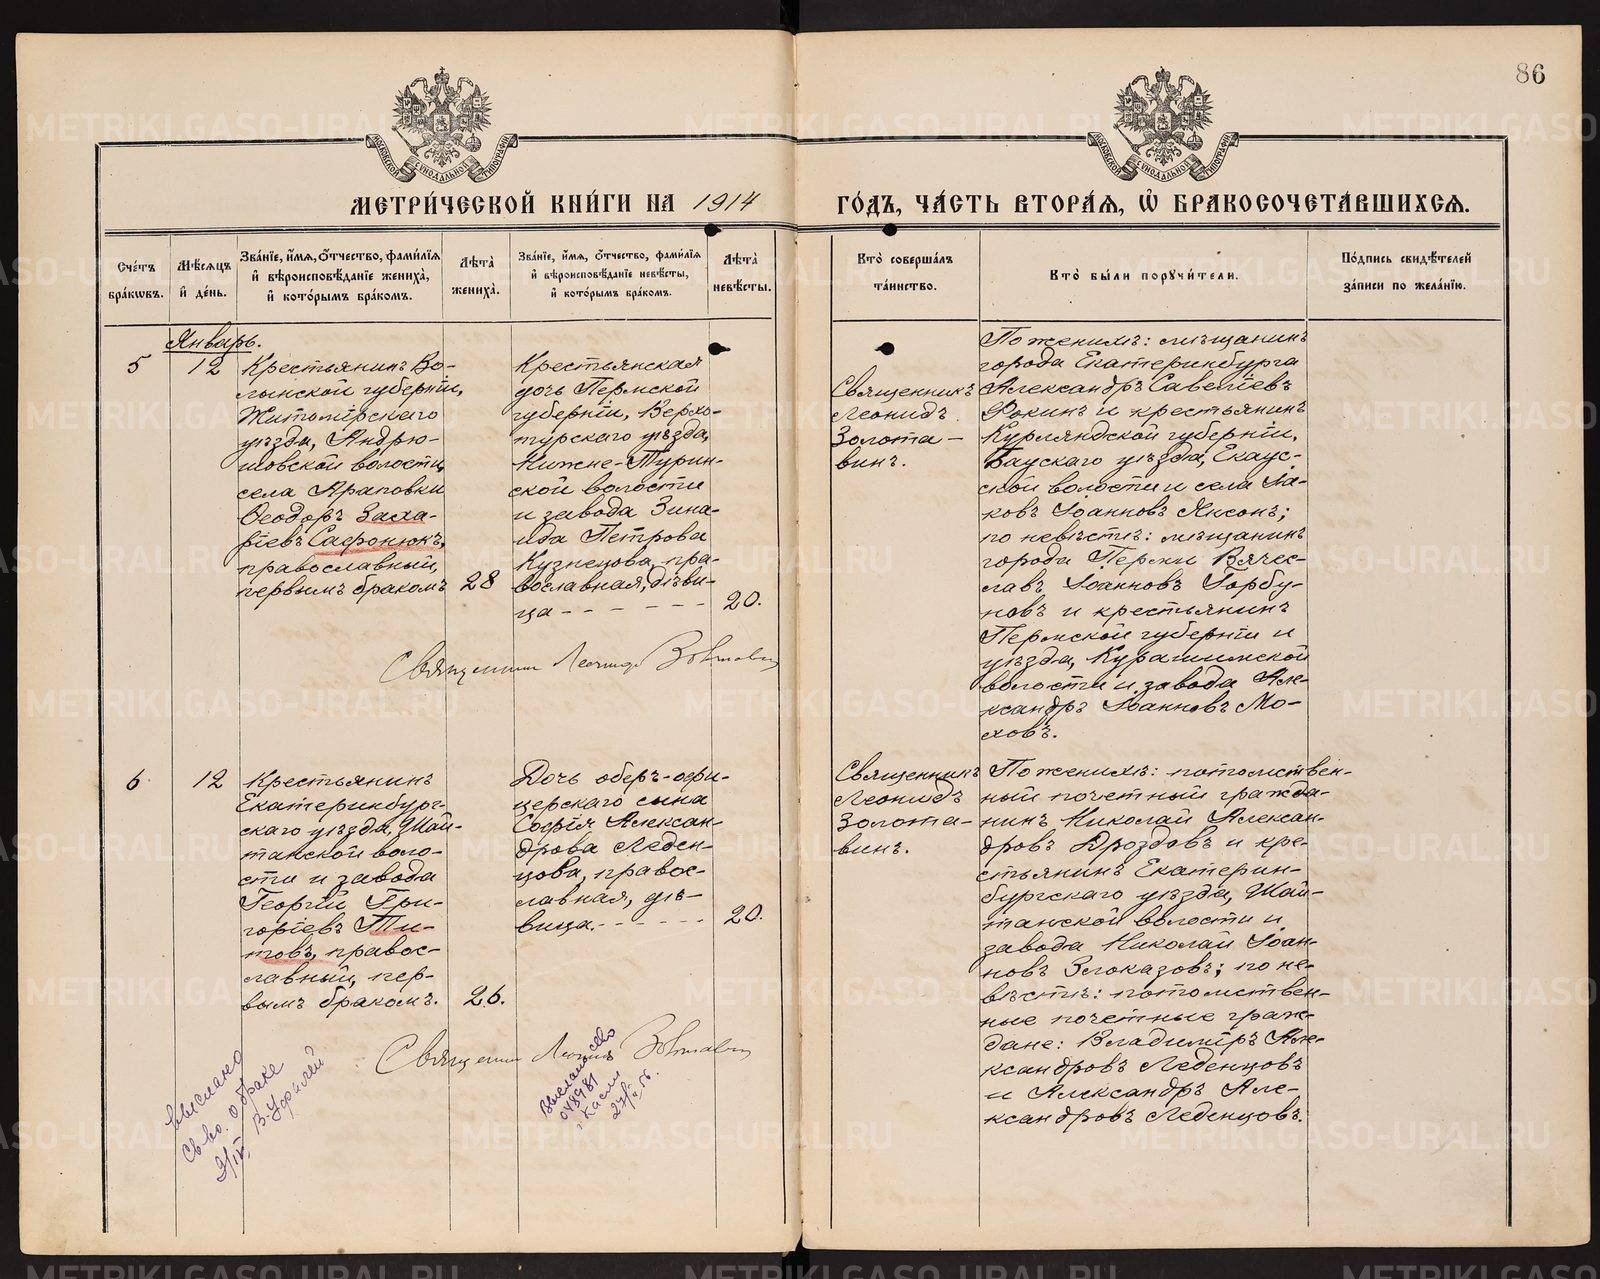 86
МЕТРИ́ЧЕСКОЙ КНИ́ГИ НА 1914 ГО́ДЪ, ЧА́СТЬ ВТОРА́Я, Ѡ҆ БРАКОСОЧЕТА́ВШИХСЯ.
МОСКОВСКОЙ СѴНОДАЛЬНОЙ ТИПОГРАФІИ
МОСКОВСКОЙ СѴНОДАЛЬНОЙ ТИПОГРАФІИ
Сче́тъ
бра́кѡвъ.
Мѣ́сяцъ
и҆ де́нь.
Зва́нїе, и҆́мя, ѻ҆́тчество, фами́лїя
и҆ вѣроисповѣ́данїе жениха̀,
и҆ кото́рымъ бра́комъ.
Лѣ́та
жениха̀.
Зва́нїе, и҆́мя, ѻ҆́тчество, фами́лїя
и҆ вѣроисповѣ́данїе невѣ́сты,
и҆ кото́рымъ бра́комъ.
Лѣ́та
невѣ́сты.
Кто̀ соверша́лъ
та́инство.
Кто̀ бы́ли поручи́тели.
По́дпись свидѣ́телей
за́писи по жела́нїю.
Январь.
5
12
Крестьянинъ Во-
лынской губерніи,
Житомірскаго
уѣзда, Андрю-
шовской волости,
села Яраповки
Ѳеодоръ Заха-
ріевъ Сафонюкъ,
православный,
первымъ бракомъ
28
Крестьянская
дочь Пермской
губерніи, Верхо-
турскаго уѣзда,
Нижне-Турин-
ской волости
и завода Зина-
ида Петрова
Кузнецова, пра-
вославная, дѣви-
ца - - - - - -
20.
Священникъ
Леонидъ
Золота-
винъ.
По женихѣ: мѣщанинъ
города Екатеринбурга
Александръ Савеліевъ
Фокинъ и крестьянинъ
Курляндской губерніи,
Баускаго уѣзда, Екаус-
ской волости и села Іа-
ковъ Іоанновъ Яксонъ;
по невѣстѣ: мѣщанинъ
города Перми Вячес-
лавъ Іоанновъ Горбу-
новъ и крестьянинъ
Пермской губерніи и
уѣзда, Курашимской
волости и завода Але-
ксандръ Іоанновъ Мо-
ховъ.
Священникъ Леонидъ Золотавинъ
6.
12
Крестьянинъ
Екатеринбург-
скаго уѣзда, Шай-
танской воло-
сти и завода
Георгій Гри-
горіевъ Ти-
товъ, правос-
лавный, пер-
вымъ бракомъ.
26.
Дочь оберъ-офи-
церскаго сына
Софія Алексан-
дрова Леден-
цова, правос-
лавная, дѣ-
вица. - - - - -
20.
Священникъ
Леонидъ
Золота-
винъ.
По женихѣ: потомствен-
ный почетный гражда-
нинъ Николай Алексан-
дровъ Дроздовъ и кре-
стьянинъ Екатерин-
бургскаго уѣзда, Шай-
танской волости и
завода Николай Іоан-
новъ Злоказовъ; по не-
вѣстѣ: потомствен-
ные почетные граж-
дане: Владиміръ Але-
ксандровъ Леденцовъ
и Александръ Але-
ксандровъ Леденцовъ.
Священникъ Леонидъ Золотавинъ
Выслано
Св-во. о браке
В. Уфалей
Выслано св-во
048981
г. Касли